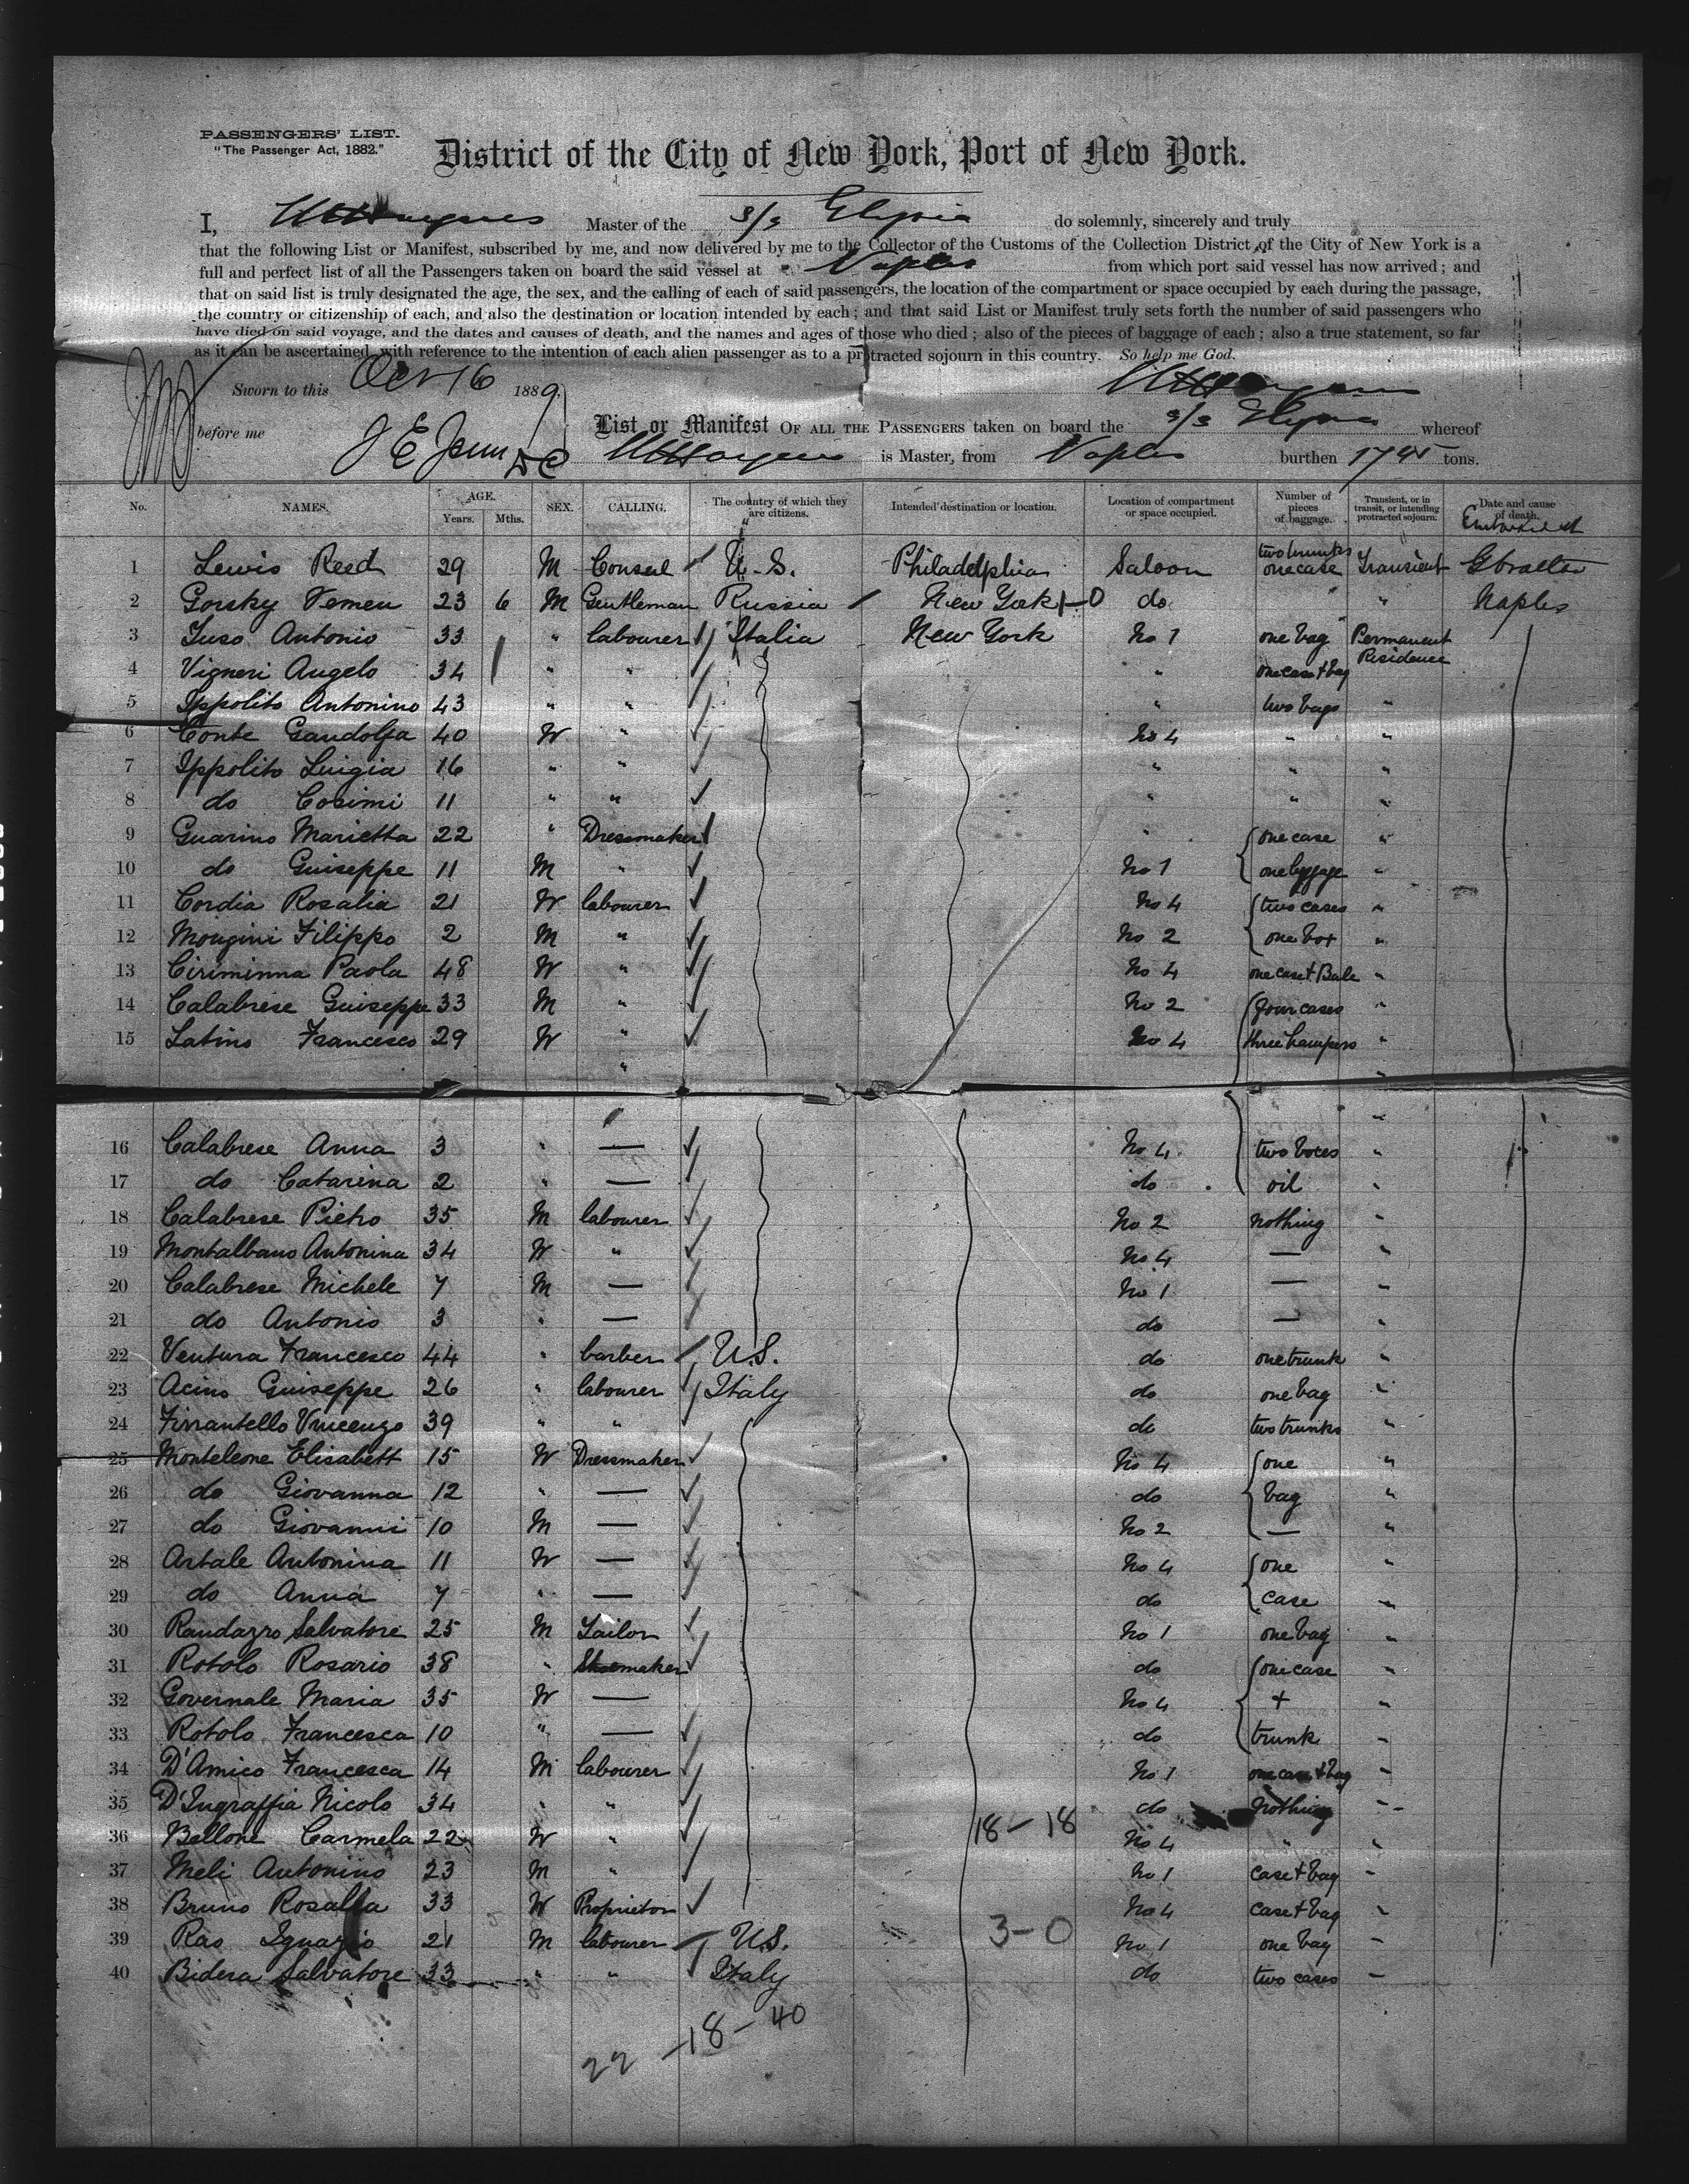 PASSENGERS' LIST.
"The Passenger Act, 1882."
District of the City of New York, Port of New York.
I, Master of the s/s Elysia do solemnly, sincerely and truly
that the following List or Manifest, subscribed by me, and now delivered by me to the Collector of the Customs of the Collection District of the City of New York is a
full and perfect list of all the Passengers taken on board the said vessel at Naples from which port said vessel has now arrived; and
that on said list is truly designated the age, the sex, and the calling of each of said passengers, the location of the compartment or space occupied by each during the passage,
the country or citizenship of each, and also the destination or location intended by each; and that said List or Manifest truly sets forth the number of said passengers who
have died on said voyage, and the dates and causes of death, and the names and ages of those who died; also of the pieces of baggage of each; also a true statement, so far
as it can be ascertained with reference to the intention of each alien passenger as to a protracted sojourn in this country. So help me God.
Sworn to this Oct 16 1889.
before me
List or Manifest OF ALL THE PASSENGERS taken on board the s/s Elysia whereof
is Master, from Naples burthen tons.
No. NAMES. AGE. Years. Mths. SEX. CALLING. The country of which they are citizens. Intended destination or location. Location of compartment or space occupied. Number of pieces of baggage. Transient, or in transit, or intending protracted sojourn. Date and cause of death. Embarked at
1 Lewis Reed 29 M Consul U.S. Philadelphia Saloon two trunks one case Transient Gbralter
2 Gorsky Vemen 23 6 M Gentleman Russia New York 1-0 do " " Naples
3 Iuso Antonio 33 " labourer Italia New York No 1 one bag Permanent Residence
4 Vigneri Angelo 34 " " " one case + bag
5 Ippolito Antonino 43 " " " two bags "
6 Conte Gandolfa 40 W " No 4 " "
7 Ippolito Luigia 16 " " " " "
8 do Cosimi 11 " " " " "
9 Guarino Marietta 22 " Dressmaker " one case "
10 do Guiseppe 11 M " No 1 one "
11 Cordia Rosalia 21 W labourer No 4 two cases "
12 Mongini Filippo 2 M " No 2 one box "
13 Ciriminna Paola 48 W " No 4 one case + Bale "
14 Calabrese Guiseppe 33 M " No 2 four cases "
15 Latino Francesco 29 W " No 4 three hampers "
16 Calabrese Anna 3 " — No 4 two boxes "
17 do Catarina 2 " — do oil "
18 Calabrese Pietro 35 M labourer No 2 nothing "
19 Montalbano Antonina 34 W " No 4 — "
20 Calabrese Michele 7 M — No 1 — "
21 do Antonio 3 " — do — "
22 Ventura Francesco 44 " barber U.S. do one trunk "
23 Acino Guiseppe 26 " labourer Italy do one bag "
24 Firrantello Vincenzo 39 " " do two trunks "
25 Monteleone Elisabett 15 W Dressmaker No 4 one "
26 do Giovanna 12 " — do bag "
27 do Giovanni 10 M — No 2 — "
28 Artale Antonina 11 W — No 4 one "
29 do Anna 7 " — do case "
30 Randazzo Salvatore 25 M Tailor No 1 one bag "
31 Rotolo Rosario 38 " Shoemaker do one case "
32 Governale Maria 35 W — No 4 + "
33 Rotolo Francesca 10 " — do trunk "
34 D'Amico Francesca 14 M labourer No 1 one case + bag "
35 D'Ingraffia Nicolo 34 " " do nothing "
36 Bellone Carmela 22 W " 18-18 No 4 " "
37 Meli Antonino 23 M " No 1 case + bag "
38 Bruno Rosalia 33 W Proprietor No 4 case + bag "
39 Rao Ignazio 21 M labourer U.S. 3-0 No 1 one bag "
40 Bidera Salvatore 33 " " Italy do two cases "
22 -18-40